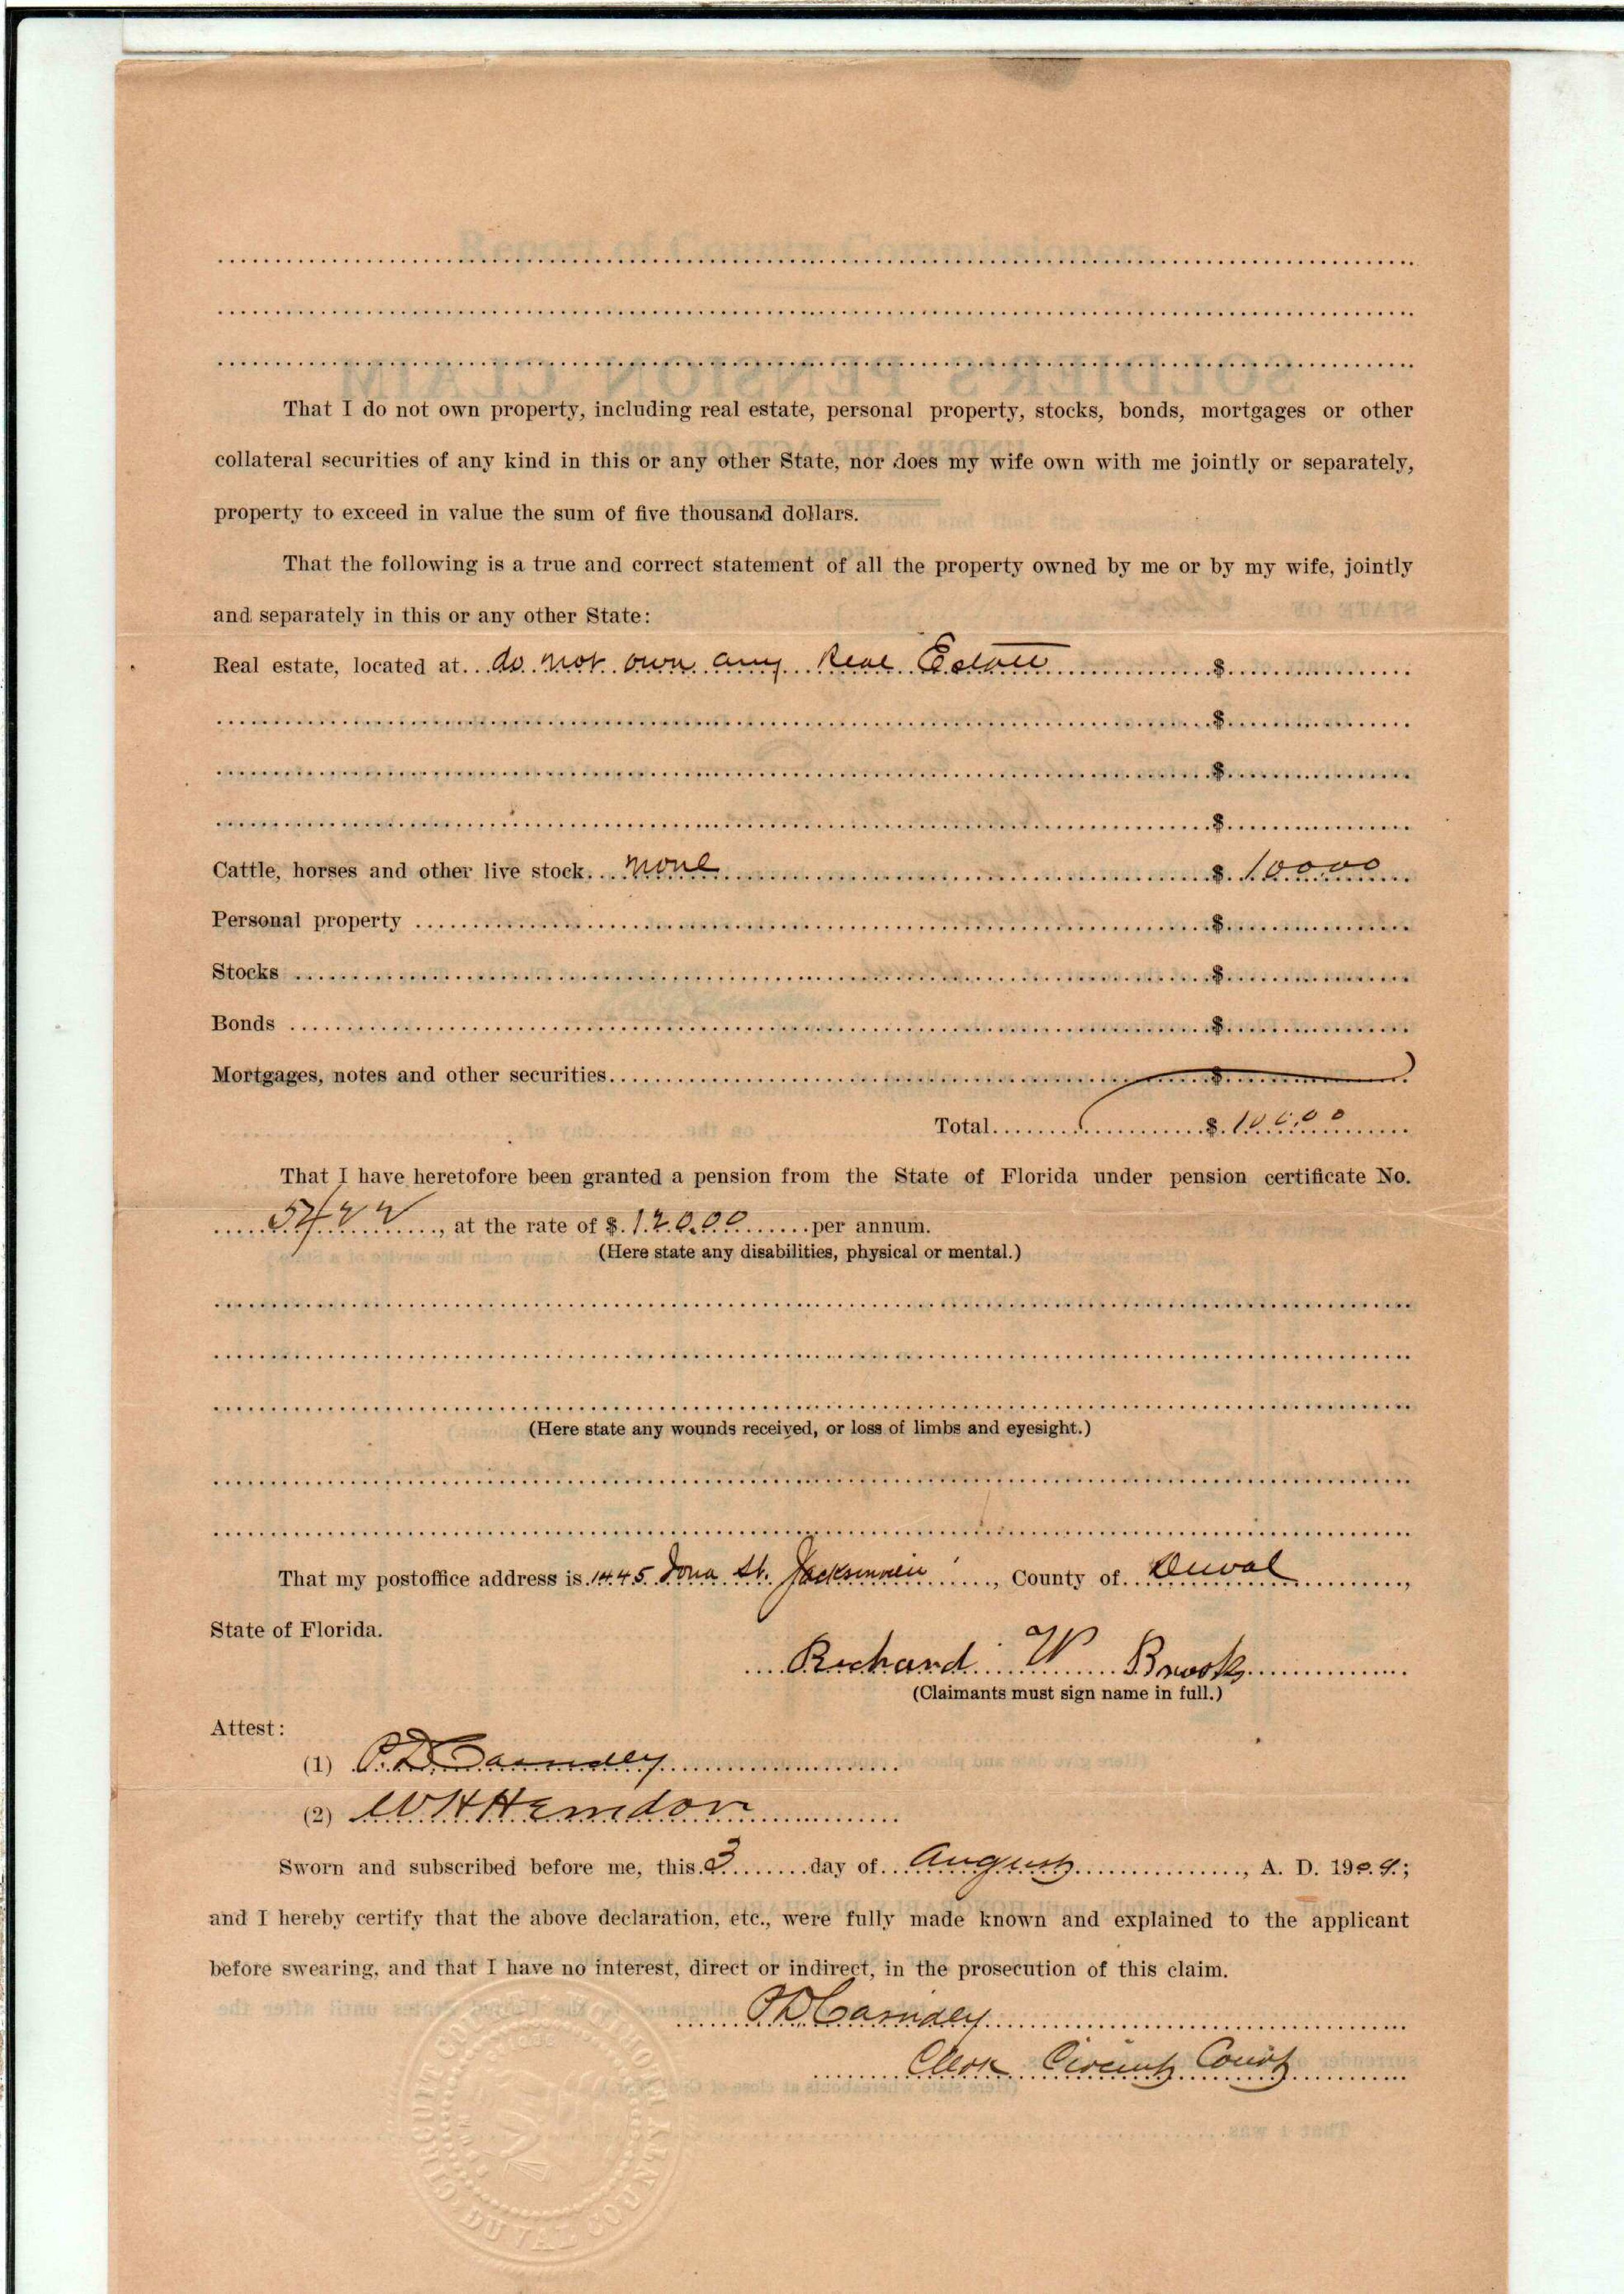 That I do not own property, including real estate, personal property, stocks, bonds, mortgages or other
collateral securities of any kind in this or any other State, nor does my wife own with me jointly or separately,
property to exceed in value the sum of five thousand dollars.
That the following is a true and correct statement of all the property owned by me or by my wife, jointly
and separately in this or any other State:
Real estate, located at do not own any Real Estate $
$
$
$
Cattle, horses and other live stock. none $ 10000
Personal property $
Stocks $
Bonds $
Mortgages, notes and other securities $
Total $ 10000
That I have heretofore been granted a pension from the State of Florida under pension certificate No.
5422, at the rate of $120.00 per annum.
(Here state any disabilities, physical or mental.)
(Here state any wounds received, or loss of limbs and eyesight.)
That my postoffice address is 1445 Iona St. Jacksonville, County of Duval,
State of Florida.
Richard W Brooks
(Claimants must sign name in full.)
Attest:
(1) P. D. Cassidey
(2) W H Herndon
Sworn and subscribed before me, this 3 day of August, A. D. 1909;
and I hereby certify that the above declaration, etc., were fully made known and explained to the applicant
before swearing, and that I have no interest, direct or indirect, in the prosecution of this claim.
P D Cassidey
Clerk Circuit Court
DUVAL COUNTY